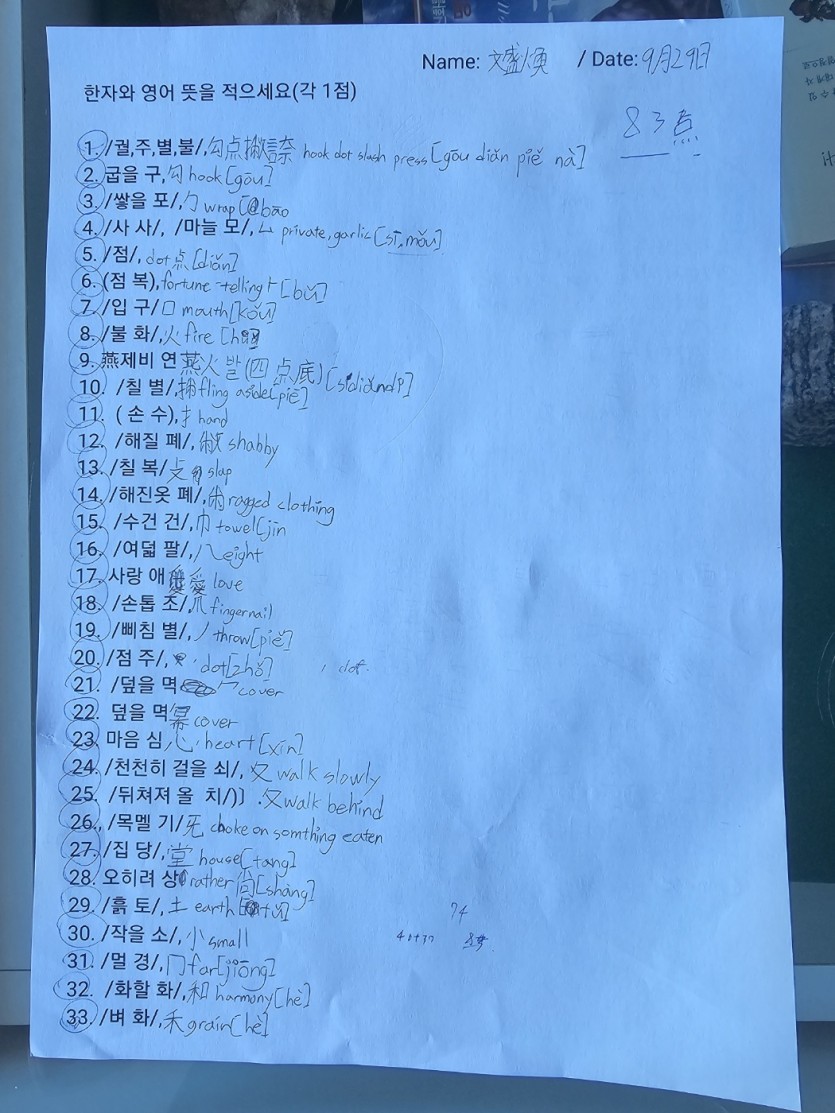 Name: 文盛煥 / Date: 9月29日
한자와 영어 뜻을 적으세요(각 1점)
83点
1. /궐,주,별,불/, 勾点撇 hook dot slash press [gōu diǎn piě nà]
2. 굽을 구, 勾 hook [gōu]
3. /쌓을 포/, 勹 wrap [bāo
4. /사 사/, /마늘 모/, 厶 private, garlic [sī, mǒu]
5. /점/, dot 点 [diǎn]
6. (점 복), fortune-telling 卜 [bǔ]
7. /입 구/ 口 mouth [kǒu]
8. /불 화/, 火 fire
9. 燕제비 연 燕火발 (四点底) [sìdiǎndǐ]
10. /칠 별/, fling aside [piē]
11. ( 손 수), 扌 hand
12. /해질 폐/, shabby
13. /칠 복/ 攴 slap
14. /해진옷 폐/, ragged clothing
15. /수건 건/, 巾 towel [jīn
16. /여덟 팔/, 八 eight
17. 사랑 애 愛 love
18. /손톱 조/, 爪 fingernail
19. /삐침 별/, 丿 throw [piě]
20. /점 주/, 丶 dot [zhǔ] , dot.
21. /덮을 멱 冖 cover
22. 덮을 멱 冪 cover
23. 마음 심, 心 heart [xīn]
24. /천천히 걸을 쇠/, 夊 walk slowly
25. /뒤쳐져 올 치/)] .夂 walk behind
26., /목멜 기/ 旡 choke on somthing eaten
27. /집 당/, 堂 house [tang]
28. 오히려 상 rather 尙 [shàng]
29. /흙 토/, 土 earth [tǔ]
74
30. /작을 소/, 小 small
40+37
31. /멀 경/, 冂 far [jiōng]
32. /화할 화/, 和 harmony [hè]
33. /벼 화/, 禾 grain [hè]